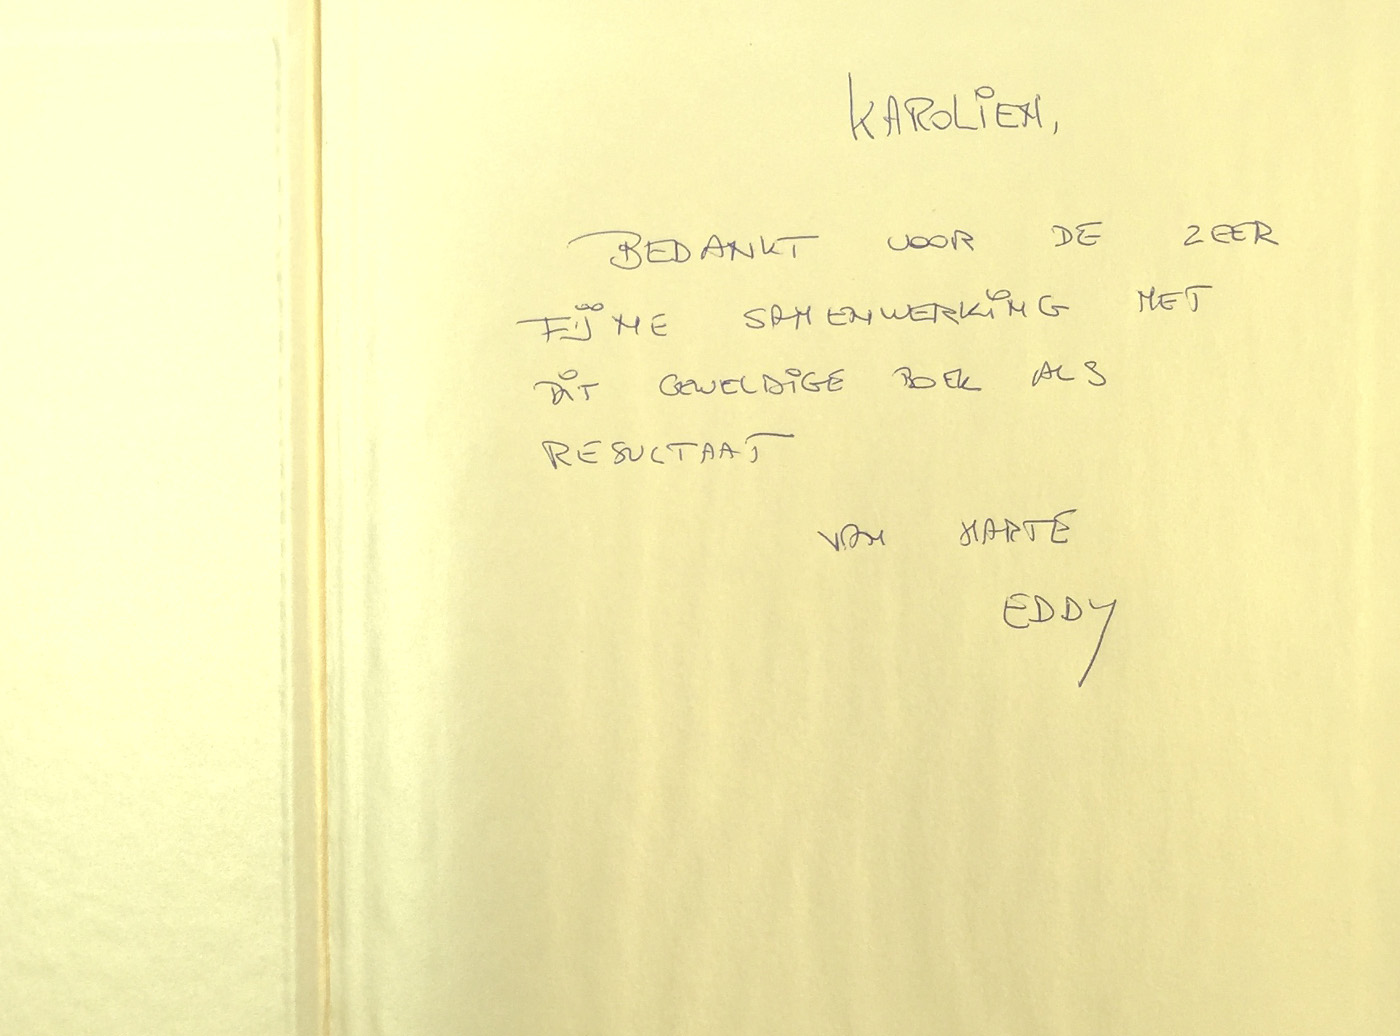 KAROLIEN,
BEDANKT VOOR DE ZEER
FIJNE SAMENWERKING MET
DIT GEWELDIGE BOEK ALS
RESULTAAT
VAN HARTE
EDDY